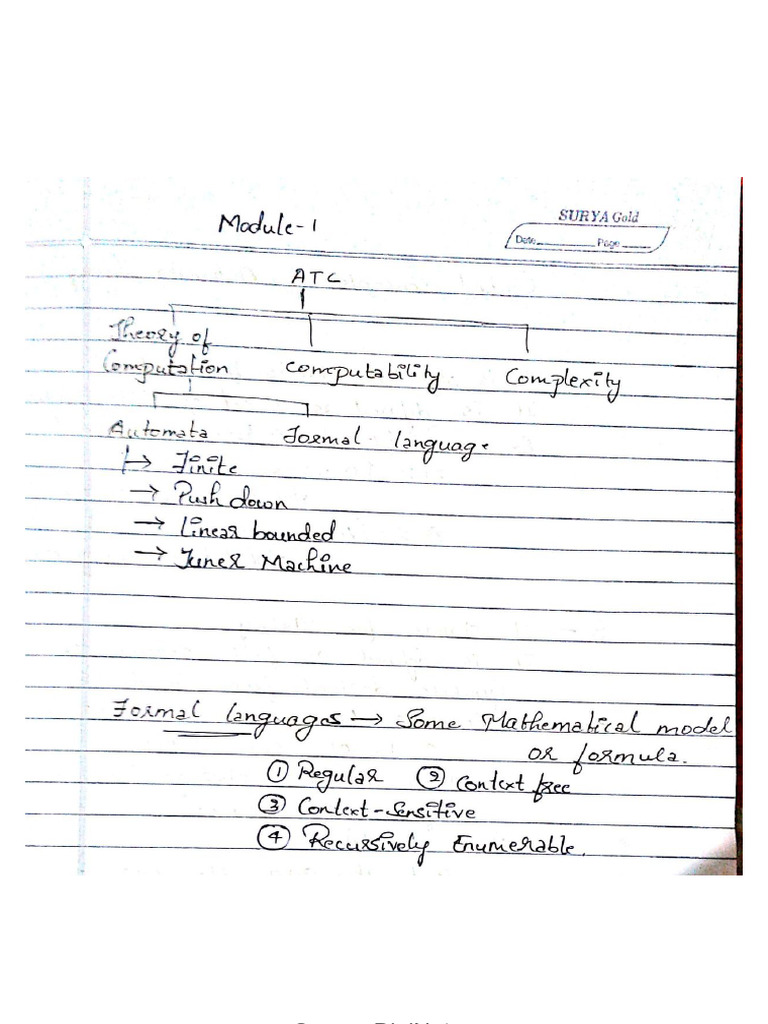 Module-1
SURYA Gold
Date Page
ATC
Theory of
Computation Computability Complexity
Automata Formal language.
→ Finite
→ Push down
→ Linear bounded
→ Tuner Machine
Formal languages → Some Mathematical model
or formula.
① Regular ② Context free
③ Context-Sensitive
④ Recursively Enumerable.